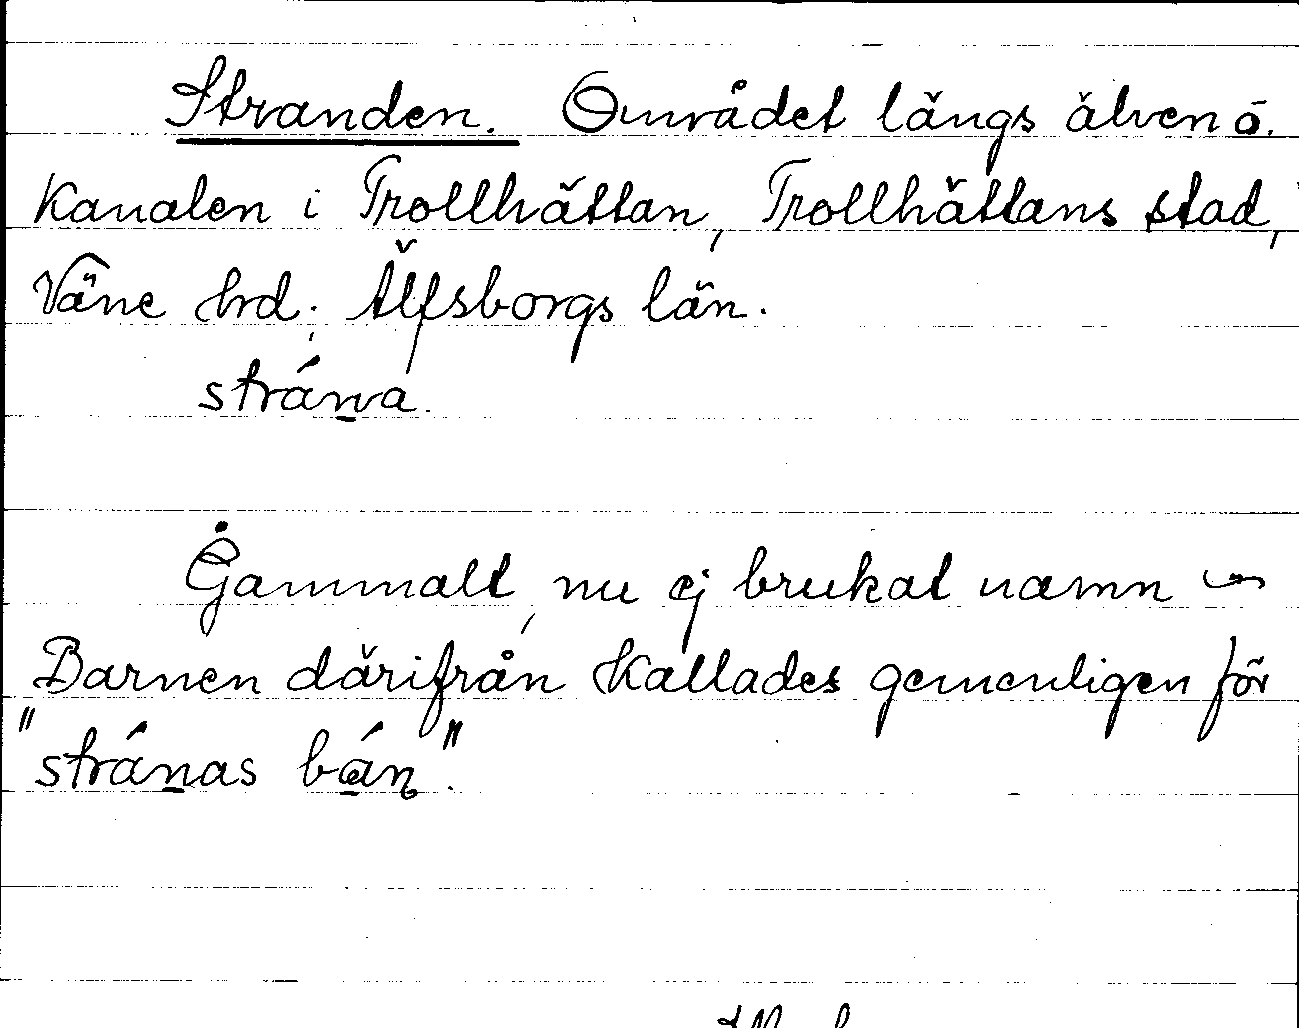 Stranden. Området längs älven o.
Kanalen i Trollhättan, Trollhättans stad,
Väne hrd. Älfsborgs län.
strána.
Gammalt, nu ej brukat namn
Barnen därifrån kallades gemenligen för
"stránas bán".